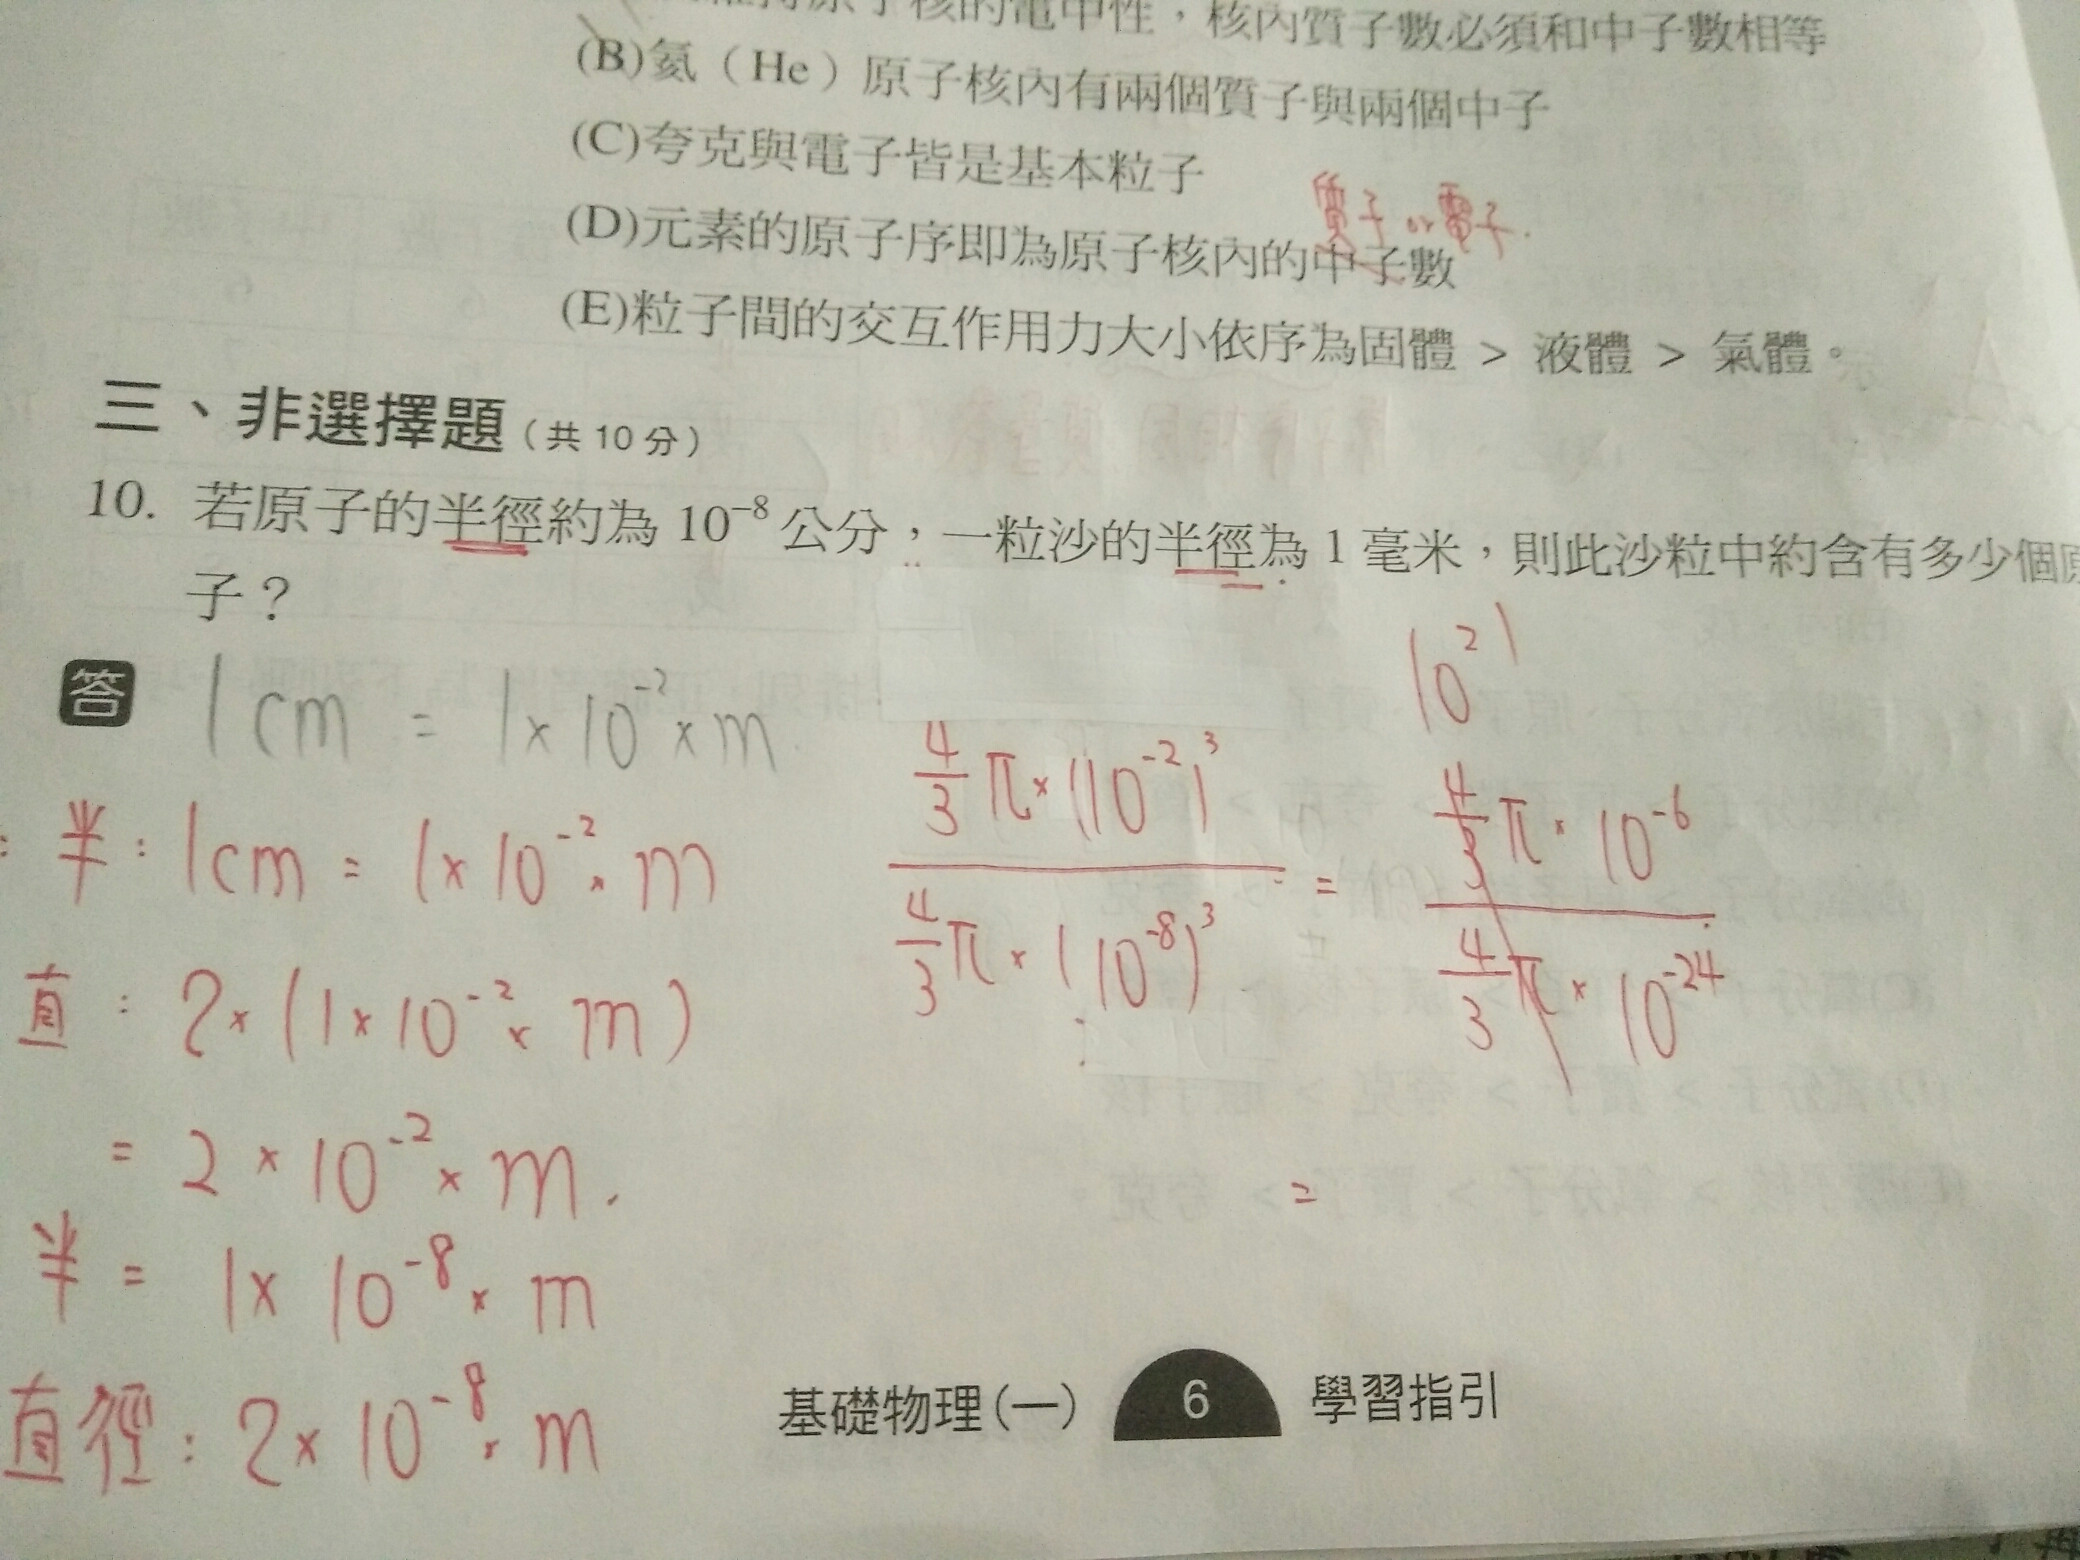 原子核的電中性，核內質子數必須和中子數相等
(B)氦（He）原子核內有兩個質子與兩個中子
(C)夸克與電子皆是基本粒子
質子 or 電子.
(D)元素的原子序即為原子核內的中子數
(E)粒子間的交互作用力大小依序為固體 > 液體 > 氣體。
三、非選擇題（共 10 分）
10. 若原子的半徑約為 10⁻⁸ 公分，一粒沙的半徑為 1 毫米，則此沙粒中約含有多少個原
子？
答 1cm = 1×10⁻²×m
半：1cm = 1×10⁻²×m
直：2×(1×10⁻²×m)
= 2×10⁻²×m.
半 = 1×10⁻⁸×m
直徑：2×10⁻⁸×m
4/3 π×(10⁻²)³
4/3 π×(10⁻⁸)³
=
10²¹
4/3 π×10⁻⁶
4/3 π×10⁻²⁴
=
基礎物理(一) 6 學習指引